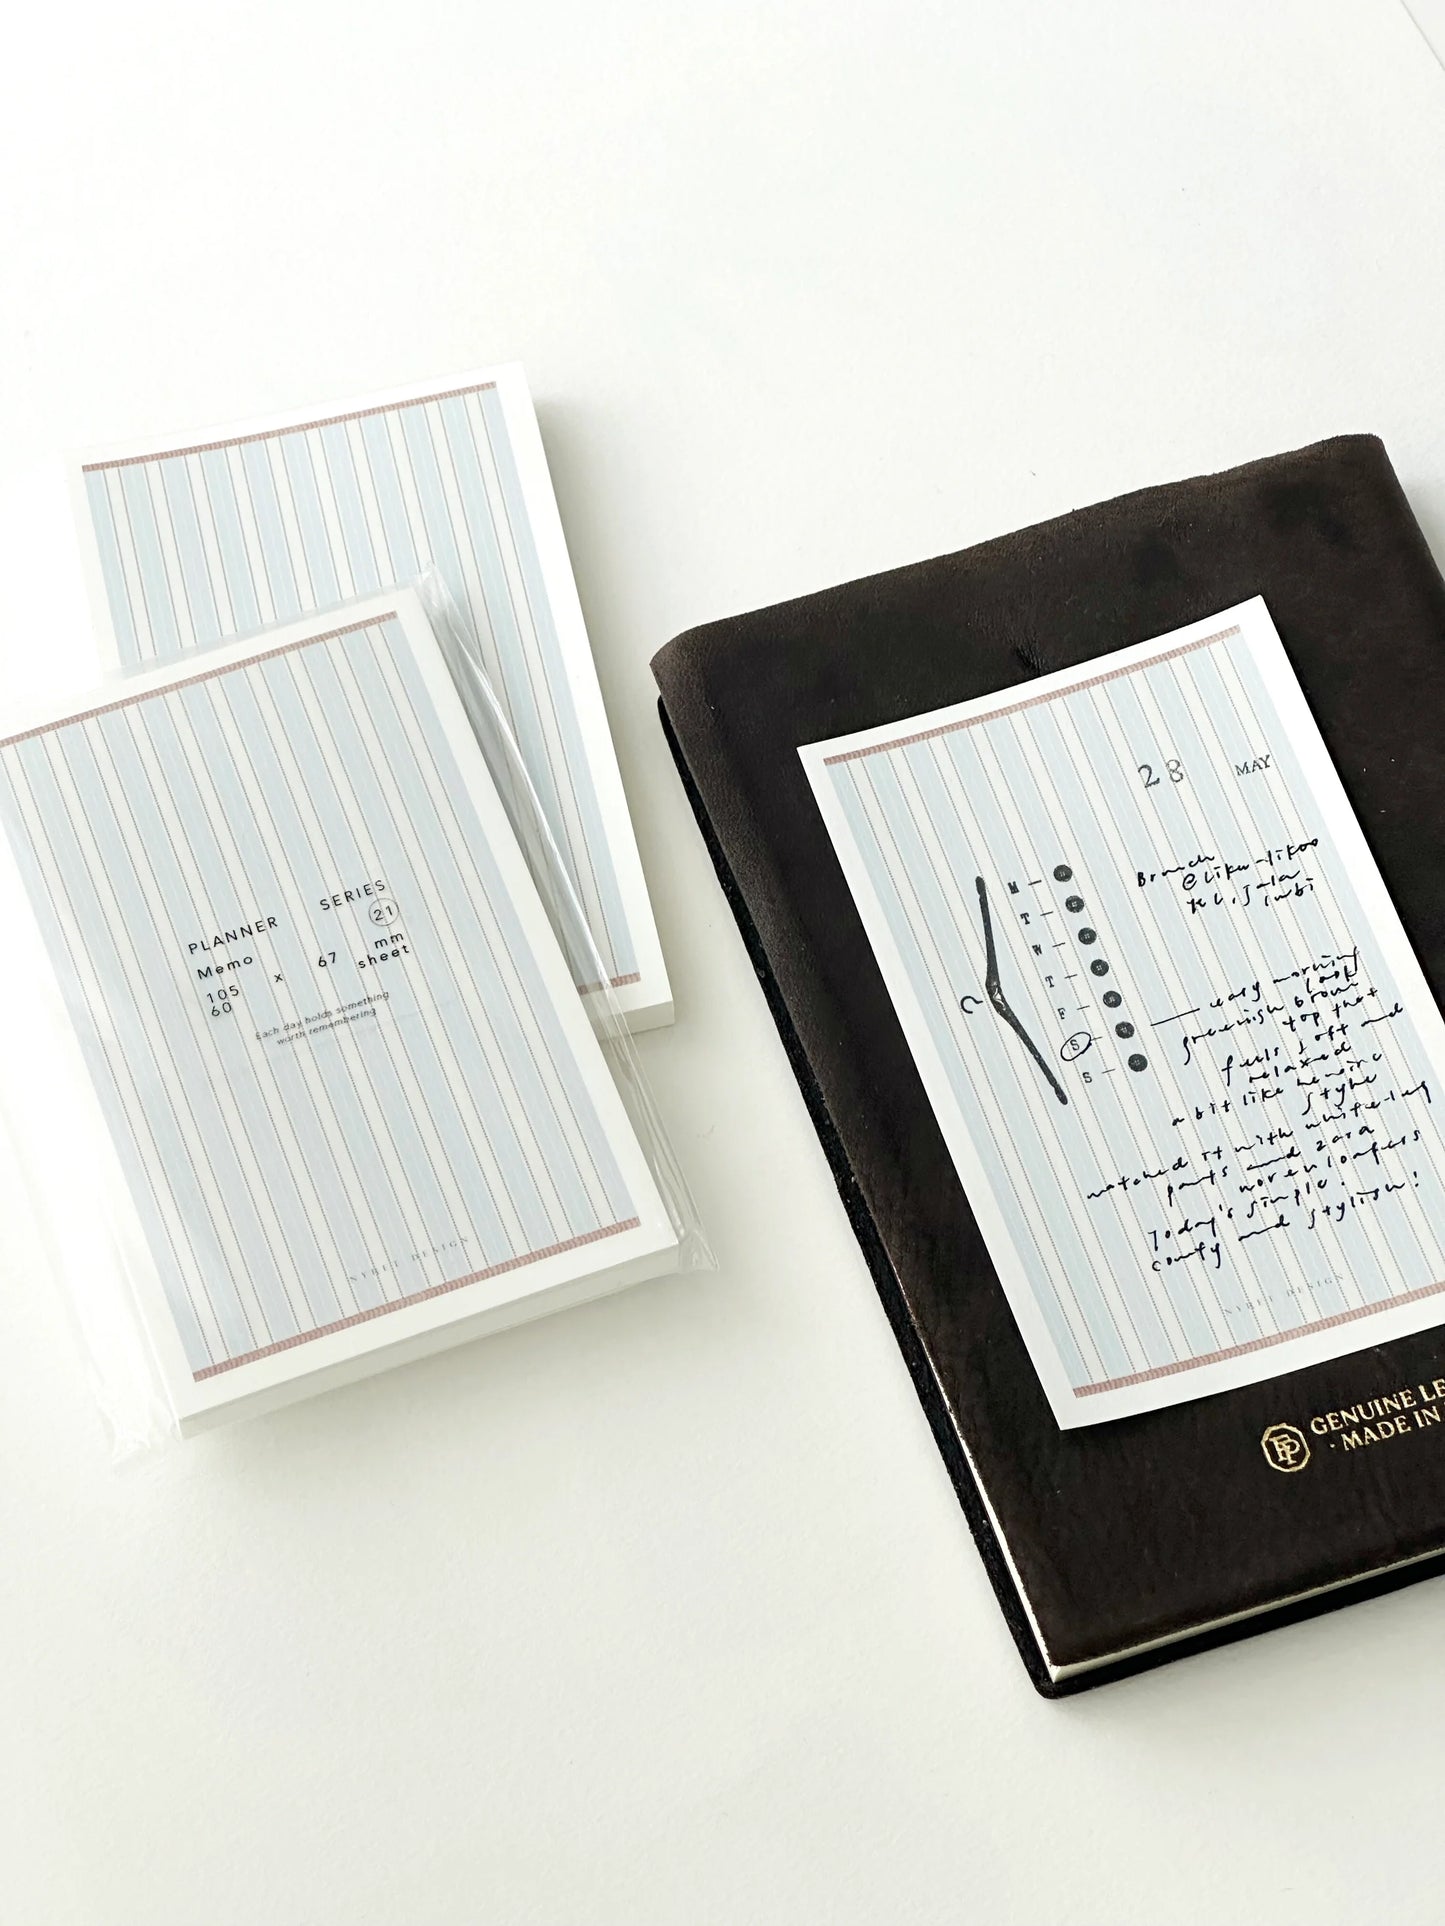 PLANNER SERIES
Memo 21
105 x 67 mm
60 sheet
Each day holds something
worth remembering
NYRET DESIGN
28 MAY
M
T
W
T
F
S
S
Brunch
jala
easy morning
look
greenish brown
top that
feels soft and
relaxed
a bit like
style
matched it with
pants and zara
woven loafers
Today's simple.
comfy and stylish!
NYRET DESIGN
GENUINE LE
· MADE IN